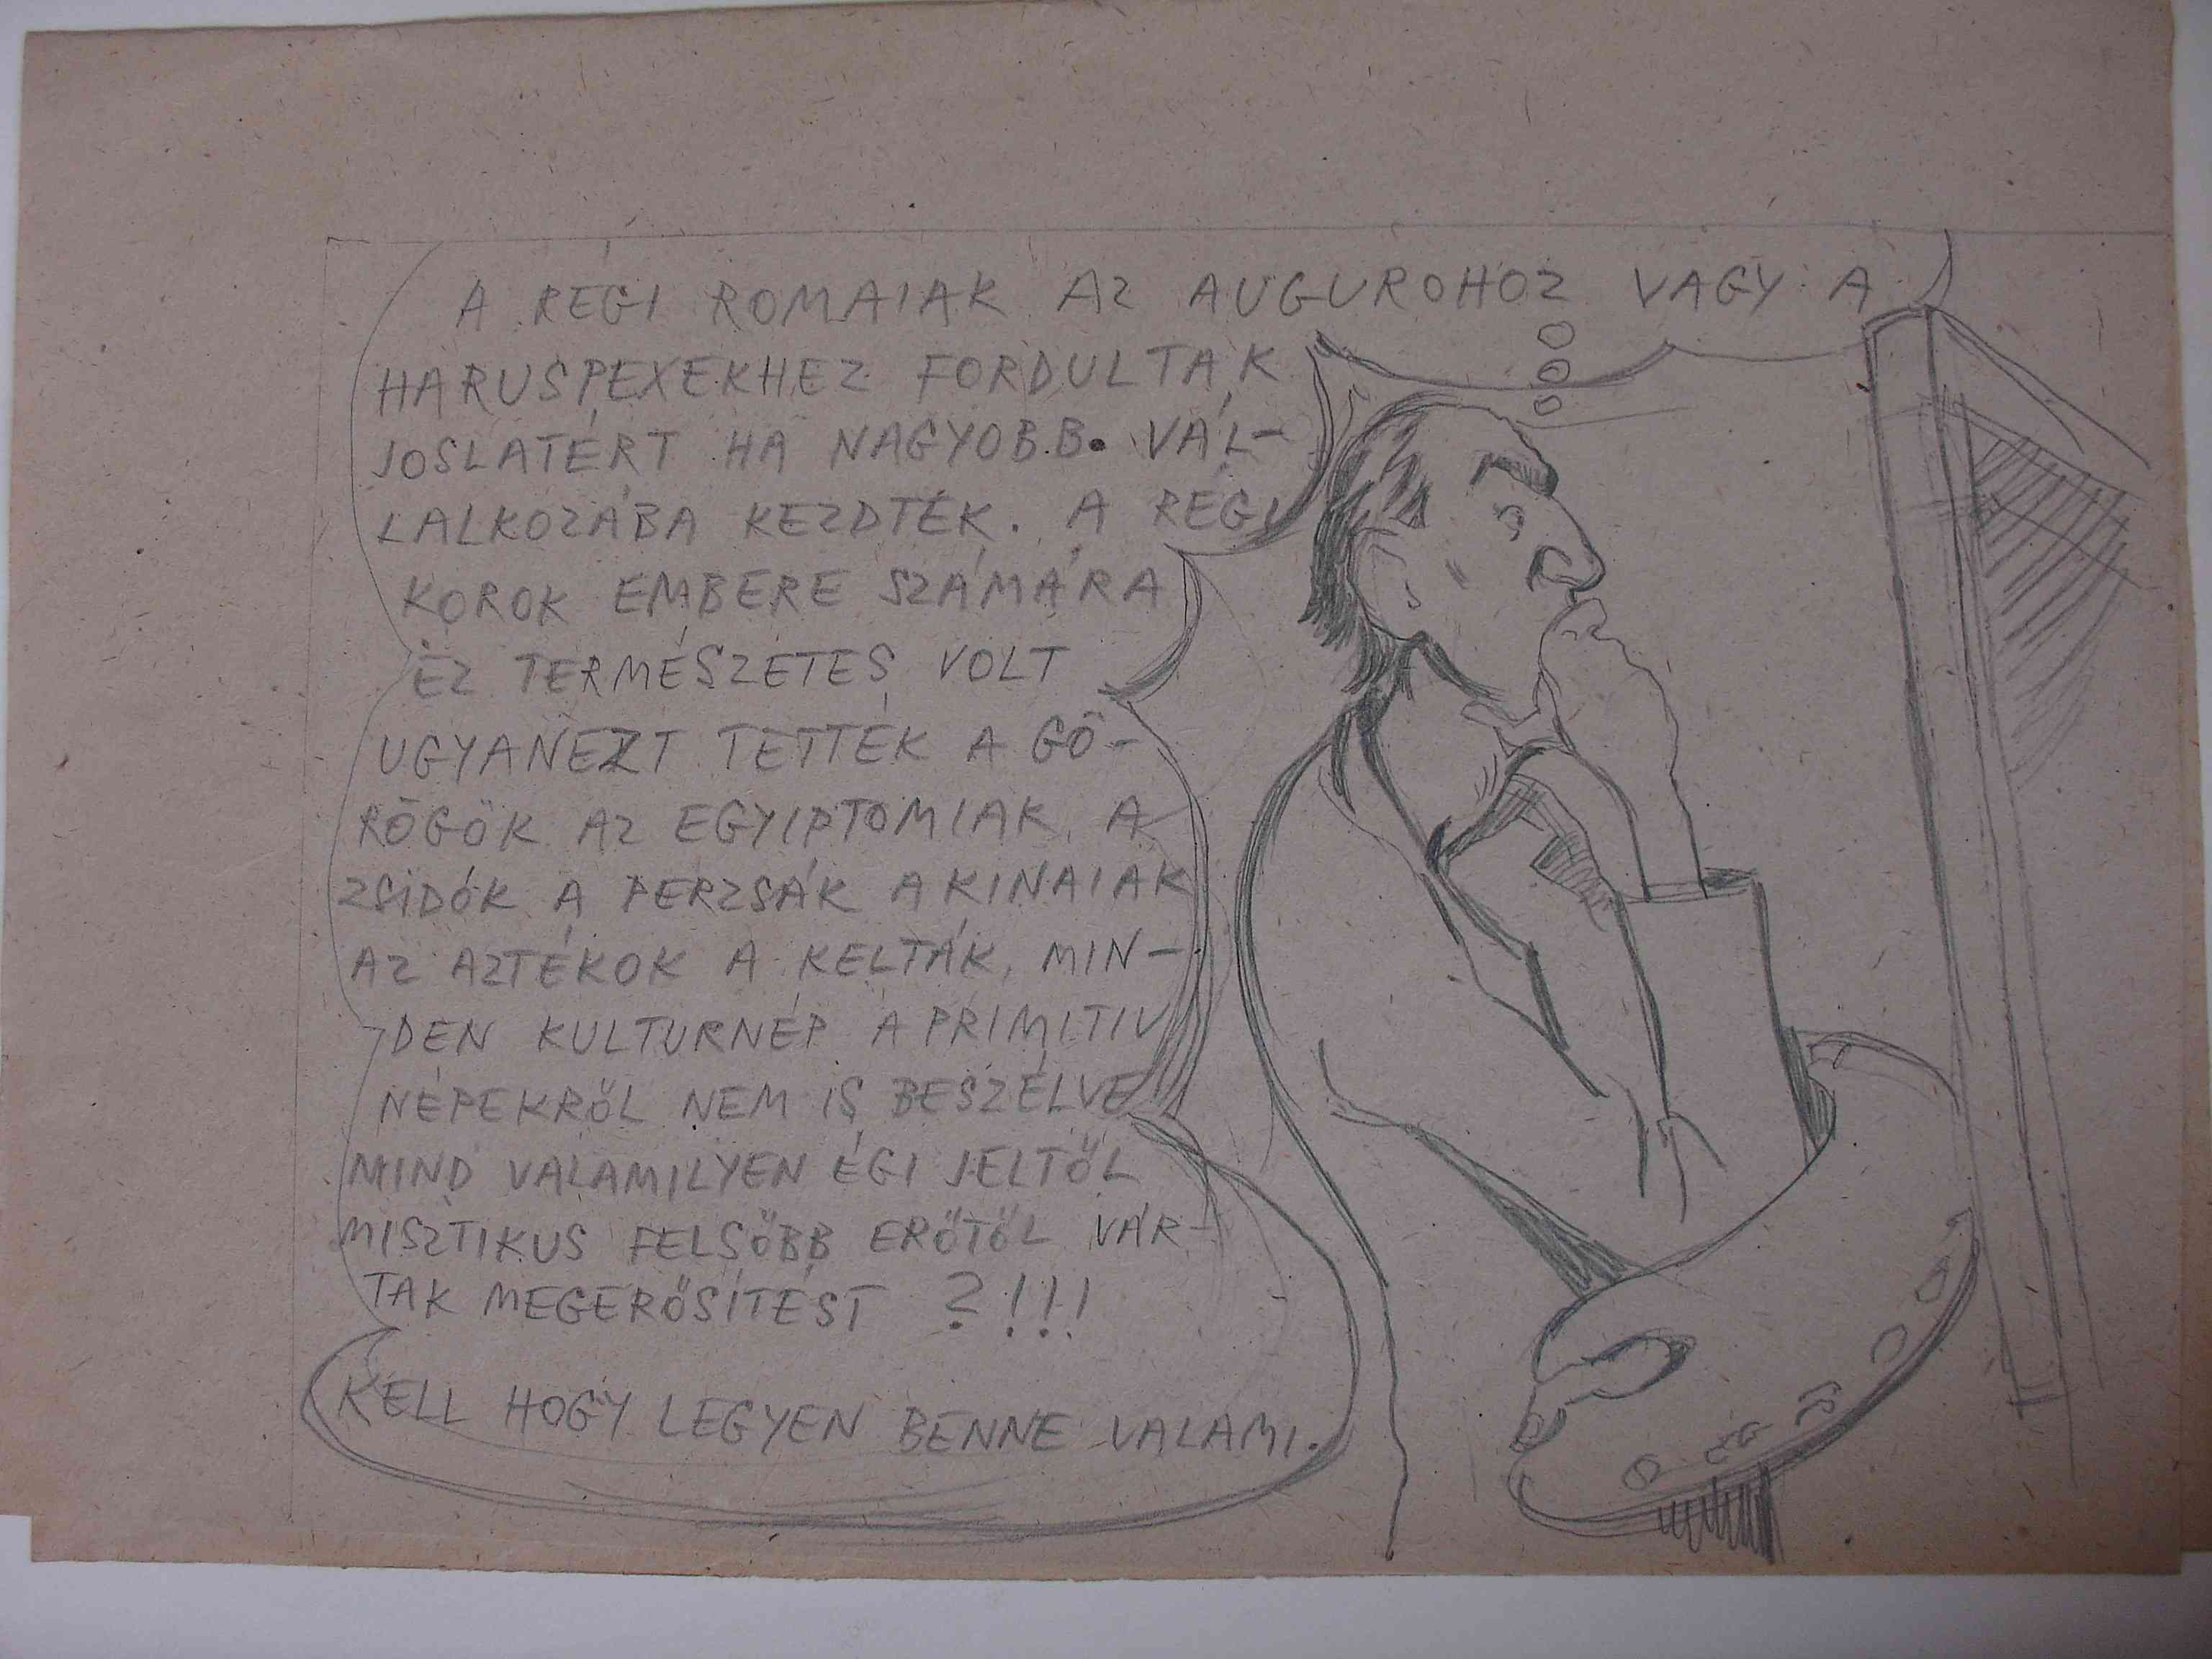 A RÉGI ROMAIAK AZ AUGUROHOZ VAGY A
HARUSPEXEKHEZ FORDULTAK
JOSLATÉRT HA NAGYOBB VÁL-
LALKOZÁBA KEZDTEK. A RÉGI
KOROK EMBERE SZÁMÁRA
EZ TERMÉSZETES VOLT
UGYANEZT TETTÉK A GÖ-
RÖGÖK AZ EGYIPTOMIAK, A
ZSIDÓK A PERZSÁK A KINAIAK
AZ AZTÉKOK A KELTÁK, MIN-
DEN KULTURNÉP A PRIMITIV
NÉPEKRŐL NEM IS BESZÉLVE
MIND VALAMILYEN ÉGI JELTŐL
MISZTIKUS FELSŐBB ERŐTŐL VÁR-
TAK MEGERŐSÍTÉST ?!!!
KELL HOGY LEGYEN BENNE VALAMI.